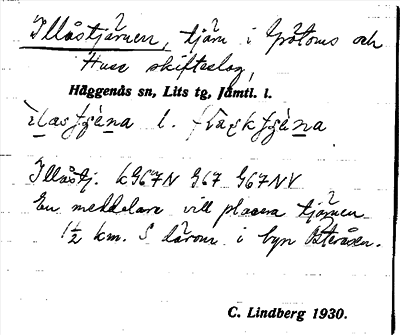 Illåstjärnen, tjärn i Grötoms och
Huse skifteslag,
Häggenås sn, Lits tg, Jämtl. l.
l.
Illåstj. kG67N G67 G67NV
En meddelare vill placera tjärnen
1½ km. S därom i byn Österåsen.
C. Lindberg 1930.